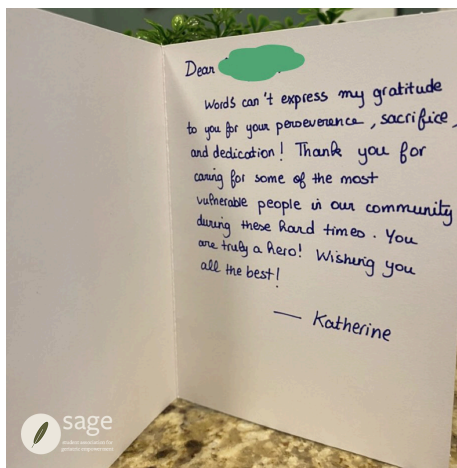 Dear
Words can't express my gratitude
to you for your perseverence, sacrifice,
and dedication! Thank you for
caring for some of the most
vulnerable people in our community
during these hard times. You
are truly a hero! Wishing you
all the best!
— Katherine
sage
student association for
geriatric empowerment